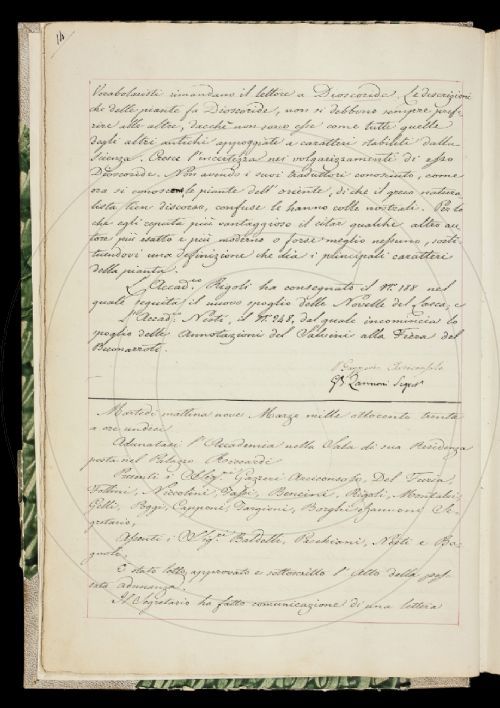 14
Vocabolaristi rimandano il lettore a Dioscoride. Le descrizioni
che delle piante fa Dioscoride, non si debbono sempre prefe-
rire alle altre, dacchè non sono esse come tutte quelle
degli altri antichi appoggiate a caratteri stabiliti dalla
Scienza. Cresce l'incertezza nei volgarizzamenti di esso
Dioscoride. Non avendo i suoi traduttori conosciuto, come
ora si conoscono le piante dell'oriente, di che il greco natura-
lista tien discorso, confuse le hanno colle nostrali. Per lo
che egli reputa più vantaggioso il citar qualche altro au-
tore più esatto e più moderno o forse meglio nessuno, sosti-
tuendovi una definizione che dia i principali caratteri
della pianta.
L'Accad.co Rigoli ha consegnato il N.o 188 nel
quale seguita il nuovo spoglio delle Novelle del Lasca, e
l'Accad.co Nesti, il N.o 248, dal quale incomincia lo
spoglio delle Annotazioni del Salvini alla Fiera del
Buonarroti.
Arciconsolo
G B Zannoni Segr.o
Martedì mattina nove Marzo mille ottocento trenta
a ore undici
Adunatasi l'Accademia nella Sala di sua Residenza
posta nel Palazzo Riccardi
Presenti i Sigg.ri Gazzeri Arciconsolo, Del Furia,
Follini, Niccolini, Tassi, Bencini, Rigoli, Montalvi,
Gelli, Poggi, Capponi, Targioni, Borghi, Zannoni Se-
gretario,
Assenti i Sigg.ri Baldelli, Paschioni, Nesti e Ba-
gnoli.
È stato letto, approvato e sottoscritto l'Atto della pas-
sata adunanza.
Il Segretario ha fatto comunicazione di una lettera